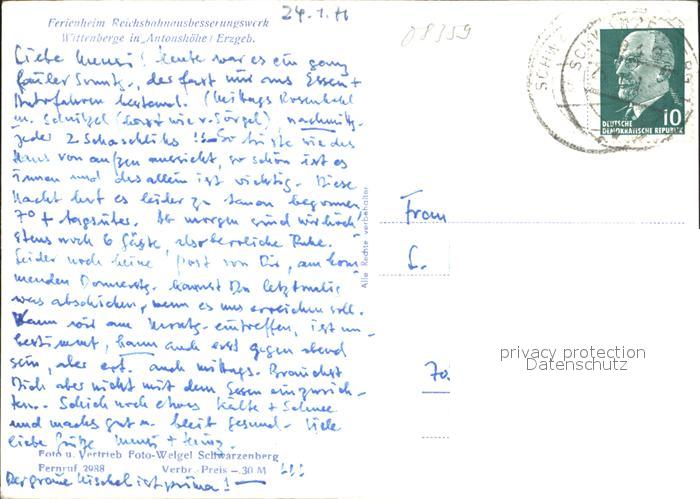 Ferienheim Reichsbahnausbesserungswerk
Wittenberge in Antonshöhe / Erzgeb.
08359
SCHW
SCHWARZE
DEUTSCHE
DEMOKRATISCHE REPUBLIK
10
Liebe heute war es ein ganz
fauler Sonntg., der fast nur aus Essen +
Autofahren bestand. (Mittags Rosenkohl
m. Schnitzel nachmittg.
jeder 2 Schaschliks !! So wie das
Haus von außen aussieht, so schön ist es
innen und das allein ist wichtig. Diese
Nacht hat es leider zu tauen begonnen
7° + tagsüber. Ab morgen sind wir höch-
stens noch 6 Gäste, also herrliche Ruhe.
Leider noch keine Post von Dir, am kom-
menden Donnerstg. kannst Du letztmalig
was abschicken, wenn es uns erreichen soll.
Wann wir am eintreffen, ist un-
bestimmt, kann auch erst gegen abend
sein, aber evt. auch mittags. Brauchst
Dich aber nicht mit dem Essen einzurich-
ten. Schick noch etwas Kälte + Schnee
und machs gut u. bleib gesund. Viele
liebe Grüße +
Foto u. Vertrieb Foto-Weigel Schwarzenberg
Fernruf 2988 Verbr.-Preis —.30 M
ist prima!
Alle Rechte vorbehalten
Frau
privacy protection
Datenschutz